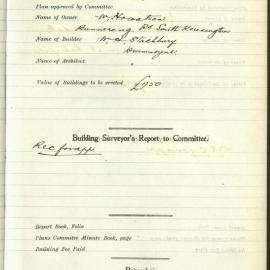 Plan approved by Committee
Name of Owner W. Howatson
Dunnerang, Rd South Kensington
Name of Builder W. H. Stachbury
Name of Architect "
Value of Buildings to be erected £750
Building Surveyor's Report to Committee.
Rec for app.
Report Book, Folio
Plans Committee Minute Book, page
Building Fee Paid